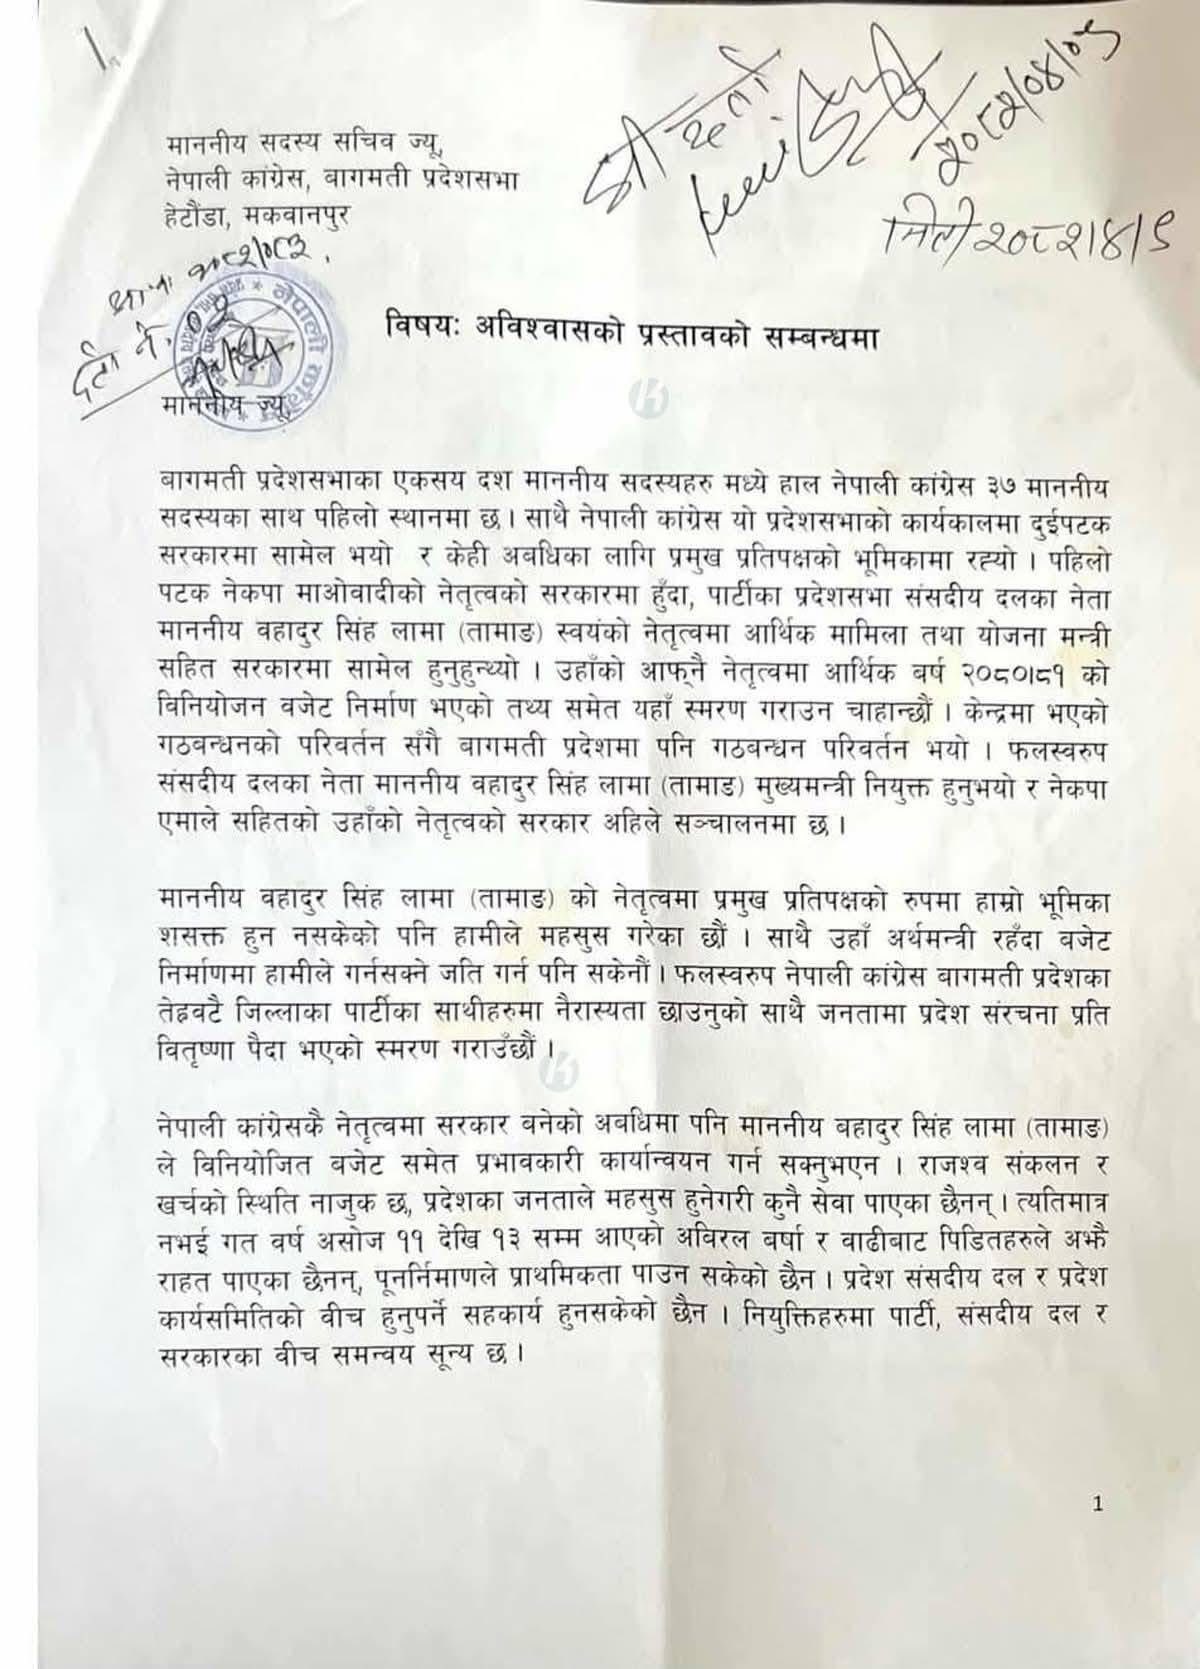 1.
श्री दर्ता
२०८२/०४/०९
मिति २०८२/४/९
माननीय सदस्य सचिव ज्यू,
नेपाली कांग्रेस, बागमती प्रदेशसभा
हेटौंडा, मकवानपुर
२०८२/०८३
दर्ता नं. ०२
नेपाली कांग्रेस
विषय: अविश्वासको प्रस्तावको सम्बन्धमा
माननीय ज्यू,
बागमती प्रदेशसभाका एकसय दश माननीय सदस्यहरु मध्ये हाल नेपाली कांग्रेस ३७ माननीय
सदस्यका साथ पहिलो स्थानमा छ । साथै नेपाली कांग्रेस यो प्रदेशसभाको कार्यकालमा दुईपटक
सरकारमा सामेल भयो र केही अबधिका लागि प्रमुख प्रतिपक्षको भूमिकामा रह्यो । पहिलो
पटक नेकपा माओवादीको नेतृत्वको सरकारमा हुँदा, पार्टीका प्रदेशसभा संसदीय दलका नेता
माननीय वहादुर सिंह लामा (तामाङ) स्वयंको नेतृत्वमा आर्थिक मामिला तथा योजना मन्त्री
सहित सरकारमा सामेल हुनुहुन्थ्यो । उहाँको आफ्नै नेतृत्वमा आर्थिक बर्ष २०८०।८१ को
विनियोजन वजेट निर्माण भएको तथ्य समेत यहाँ स्मरण गराउन चाहान्छौं । केन्द्रमा भएको
गठबन्धनको परिवर्तन सँगै बागमती प्रदेशमा पनि गठबन्धन परिवर्तन भयो । फलस्वरुप
संसदीय दलका नेता माननीय वहादुर सिंह लामा (तामाङ) मुख्यमन्त्री नियुक्त हुनुभयो र नेकपा
एमाले सहितको उहाँको नेतृत्वको सरकार अहिले सञ्चालनमा छ ।
माननीय वहादुर सिंह लामा (तामाङ) को नेतृत्वमा प्रमुख प्रतिपक्षको रुपमा हाम्रो भूमिका
शसक्त हुन नसकेको पनि हामीले महसुस गरेका छौं । साथै उहाँ अर्थमन्त्री रहँदा वजेट
निर्माणमा हामीले गर्नसक्ने जति गर्न पनि सकेनौं । फलस्वरुप नेपाली कांग्रेस बागमती प्रदेशका
तेह्रवटै जिल्लाका पार्टीका साथीहरुमा नैरास्यता छाउनुको साथै जनतामा प्रदेश संरचना प्रति
वितृष्णा पैदा भएको स्मरण गराउँछौं ।
नेपाली कांग्रेसकै नेतृत्वमा सरकार बनेको अबधिमा पनि माननीय बहादुर सिंह लामा (तामाङ)
ले विनियोजित बजेट समेत प्रभावकारी कार्यान्वयन गर्न सक्नुभएन । राजश्व संकलन र
खर्चको स्थिति नाजुक छ, प्रदेशका जनताले महसुस हुनेगरी कुनै सेवा पाएका छैनन् । त्यतिमात्र
नभई गत वर्ष असोज ११ देखि १३ सम्म आएको अविरल बर्षा र वाढीबाट पिडितहरुले अझै
राहत पाएका छैनन्, पूनर्निमाणले प्राथमिकता पाउन सकेको छैन । प्रदेश संसदीय दल र प्रदेश
कार्यसमितिको वीच हुनुपर्ने सहकार्य हुनसकेको छैन । नियुक्तिहरुमा पार्टी, संसदीय दल र
सरकारका वीच समन्वय सून्य छ ।
1